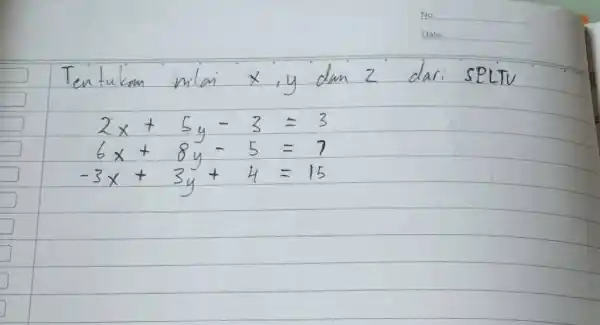 No.
Date.
Tentukan nilai x, y dan z dari SPLTV
2x + 5y - 3 = 3
6x + 8y - 5 = 7
-3x + 3y + 4 = 15